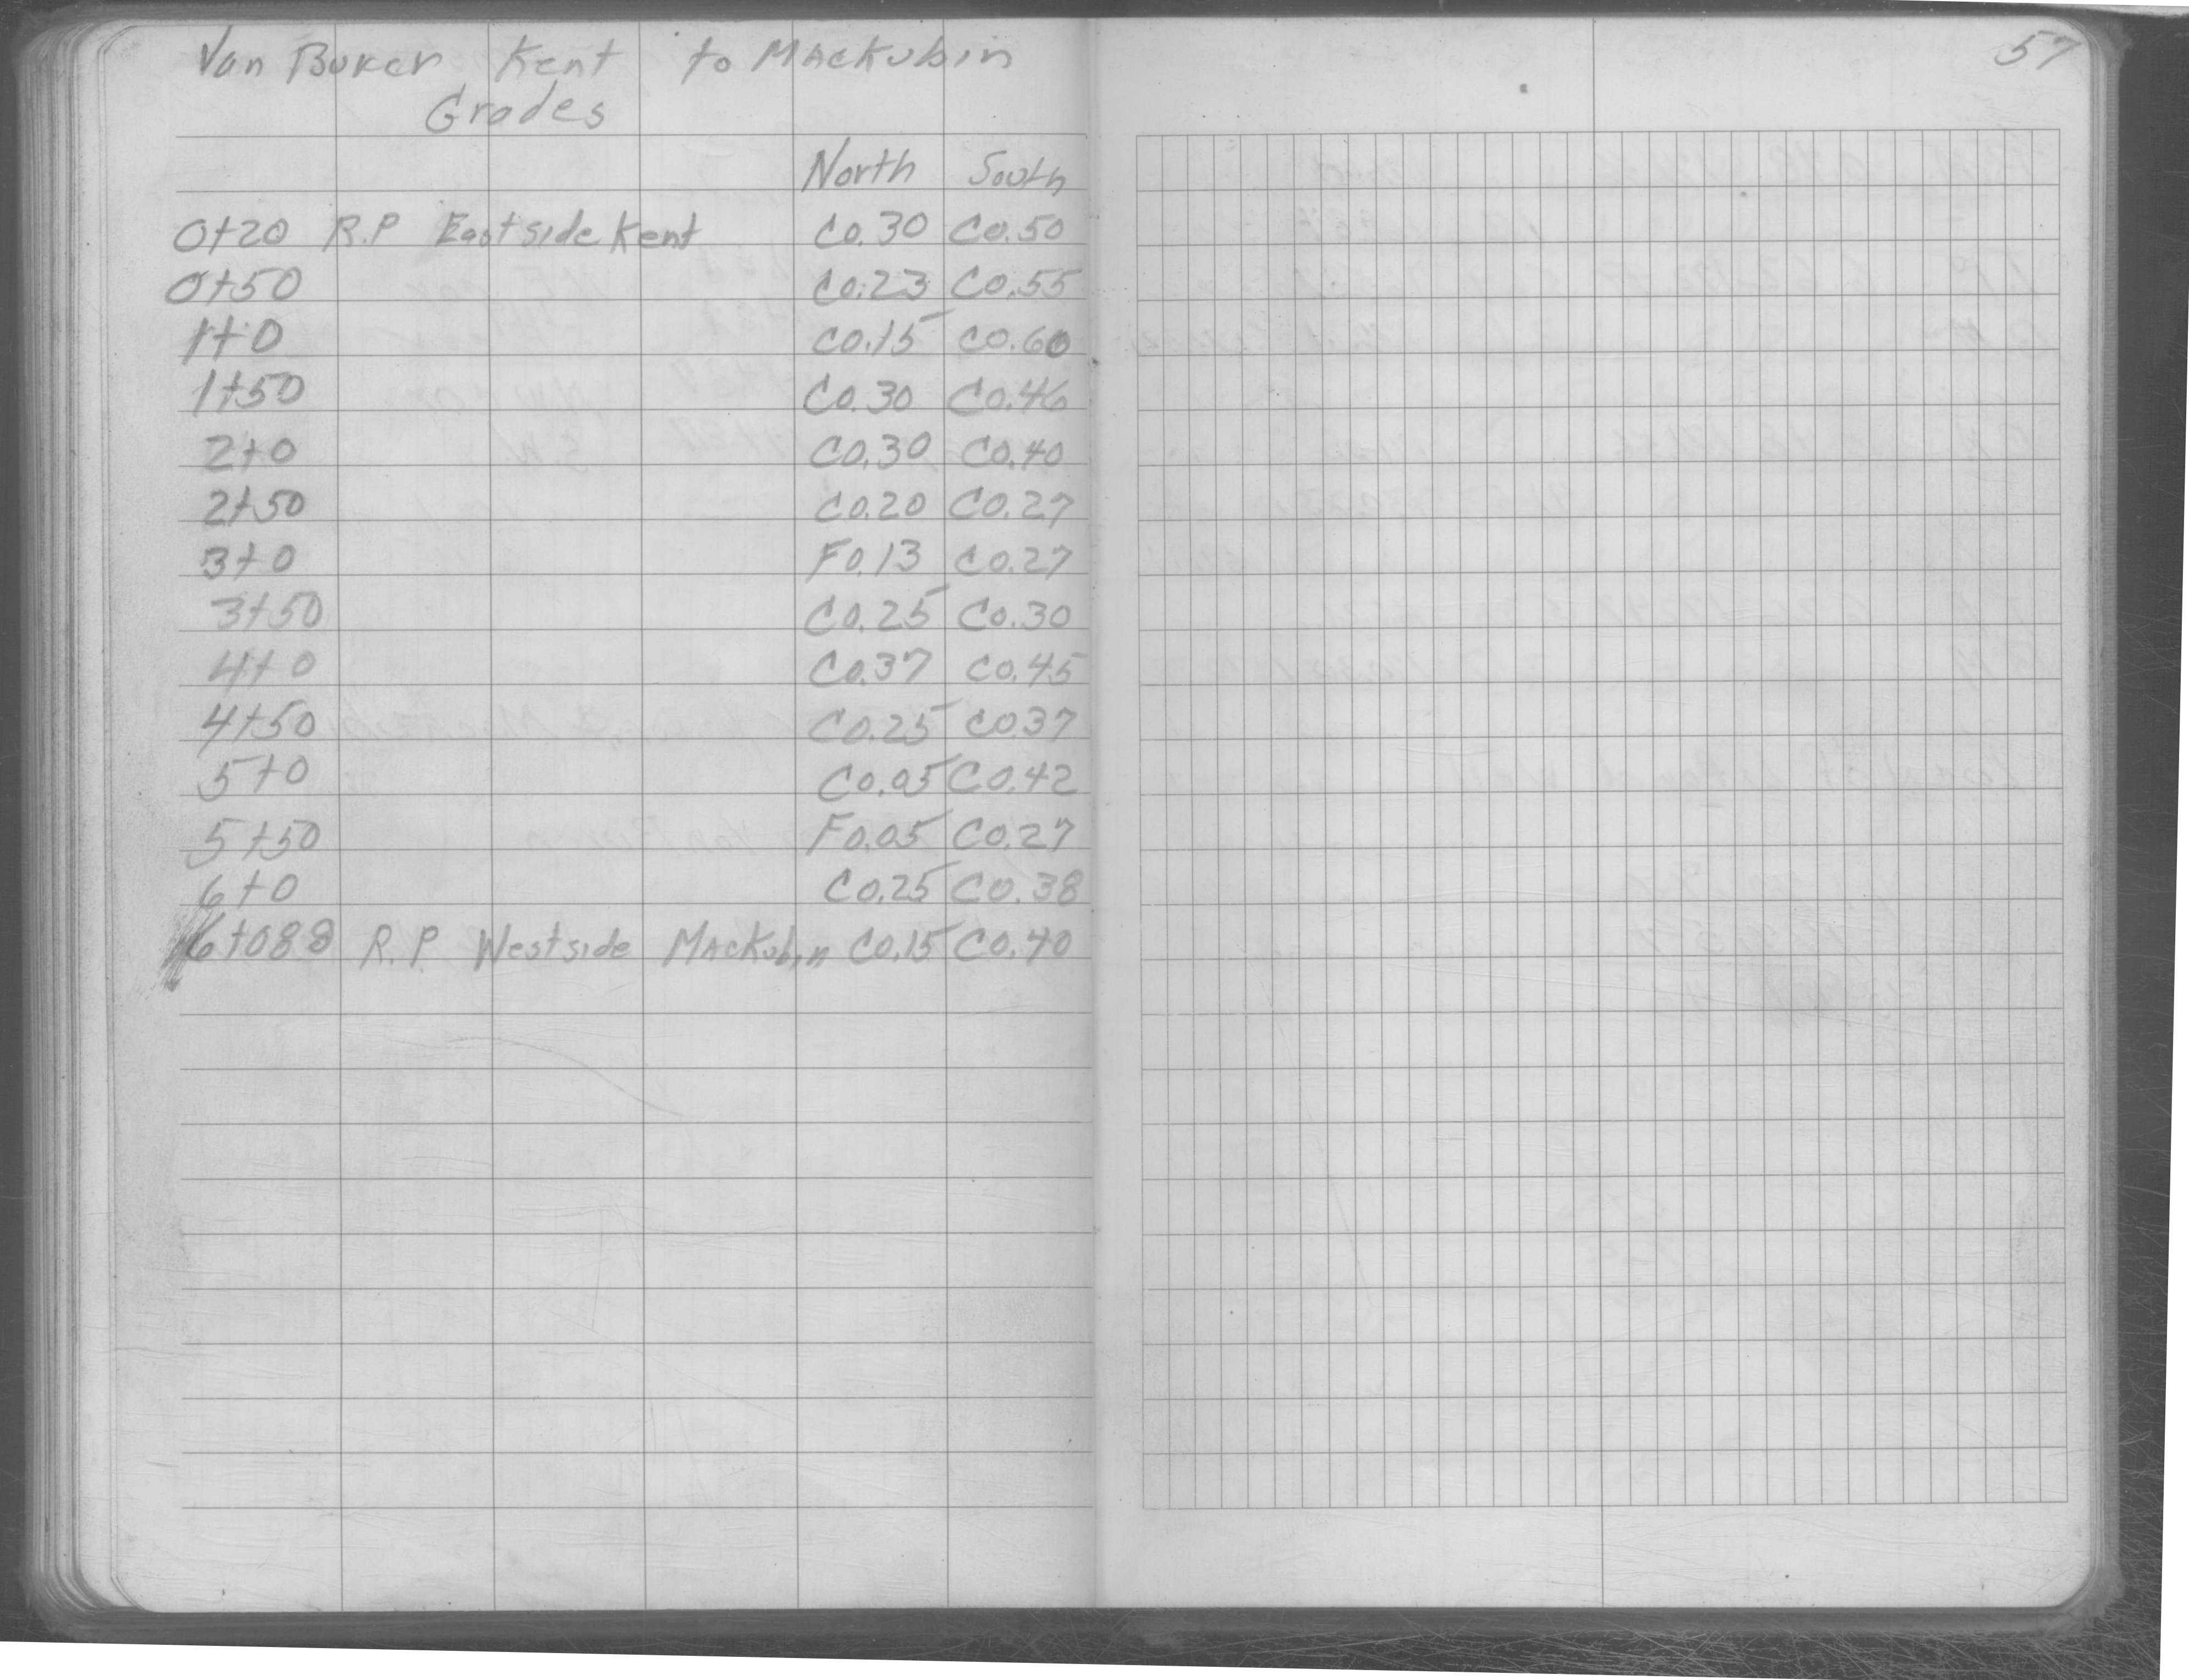 Van Buren Kent to Mackubin
57
Grades
North South
0+20 R.P Eastside Kent C0.30 C0.50
0+50 C0.23 C0.55
1+0 C0.15 C0.60
1+50 C0.30 C0.46
2+0 C0.30 C0.40
2+50 C0.20 C0.27
3+0 F0.13 C0.27
3+50 C0.25 C0.30
4+0 C0.37 C0.45
4+50 C0.25 C037
5+0 C0.05 C0.42
5+50 F0.05 C0.27
6+0 C0.25 C0.38
6+088 R.P. Westside Mackubin C0.15 C0.40